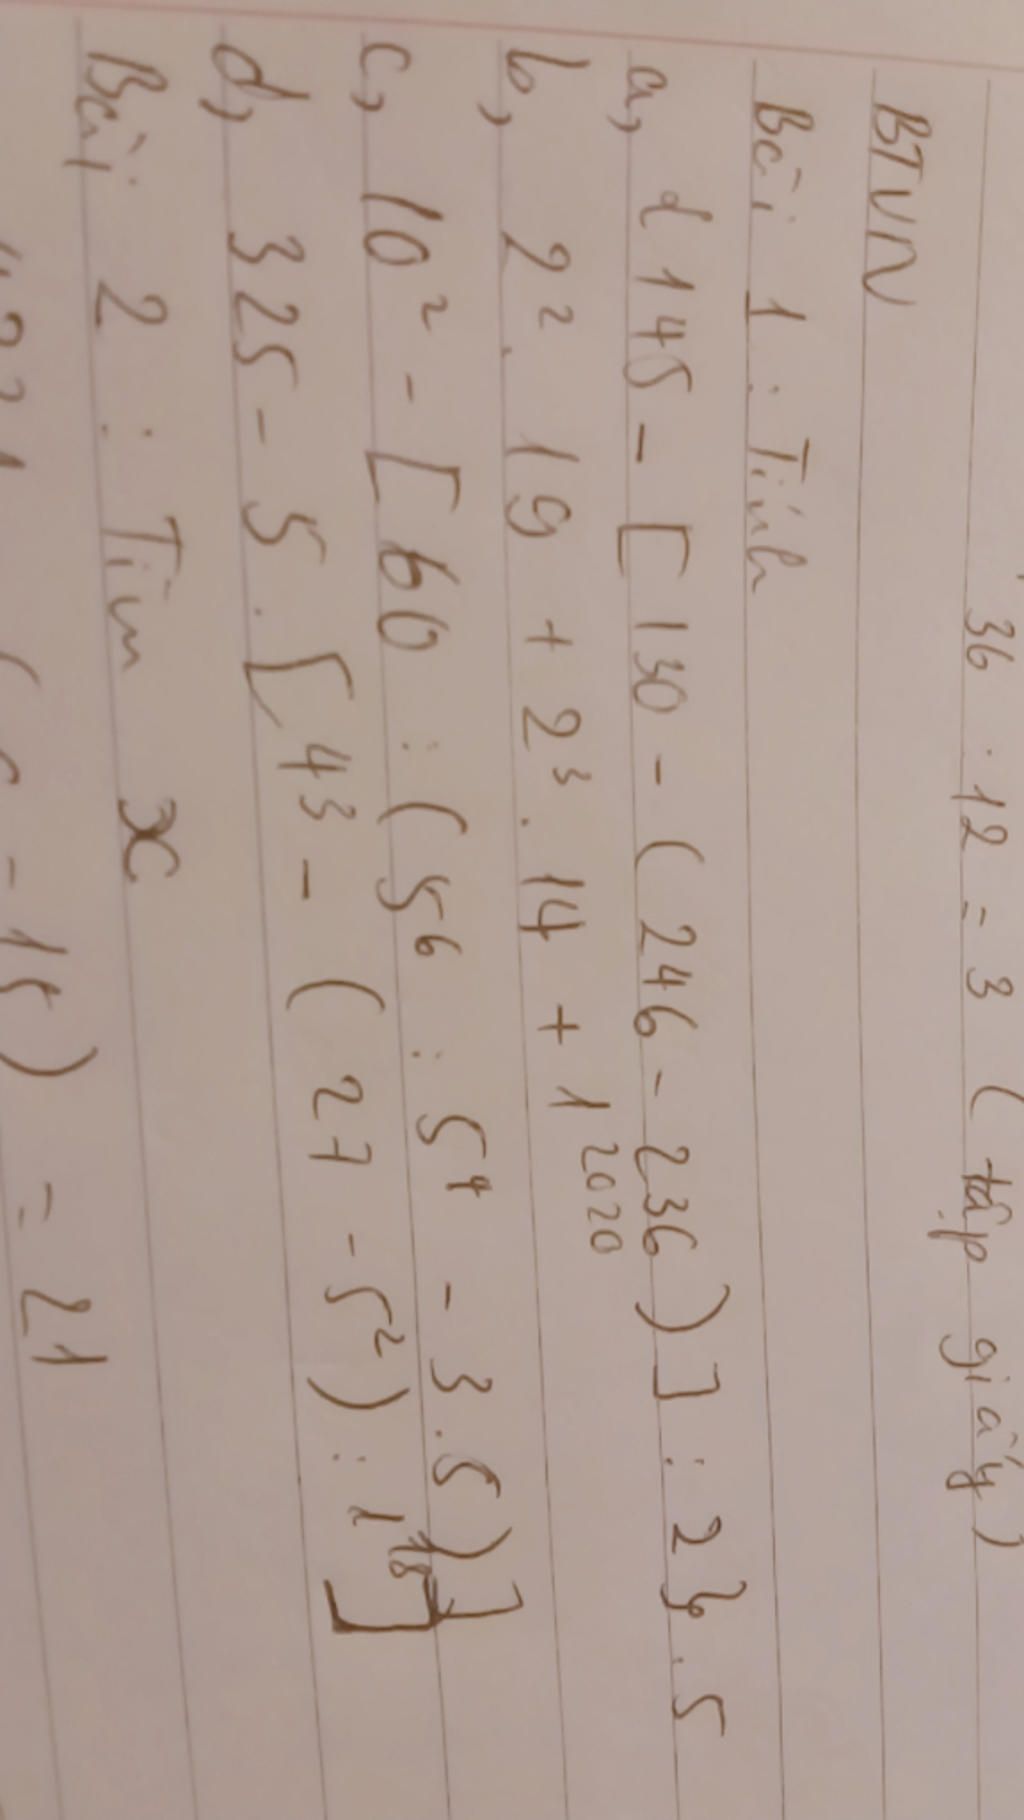 36 : 12 = 3 ( tập giấy )
BTVN
Bài 1 : Tính
a, { 145 - [ 130 - ( 246 - 236 ) ] : 2 } . 5
b, 2² . 19 + 2³ . 14 + 1²⁰²⁰
c, 10² - [ 60 : ( 5⁶ : 5⁴ - 3 . 5 ) ]
d, 325 - 5 . [ 4³ - ( 27 - 5² ) : 1¹⁸ ]
Bài 2 : Tìm x
- 15 ) = 21